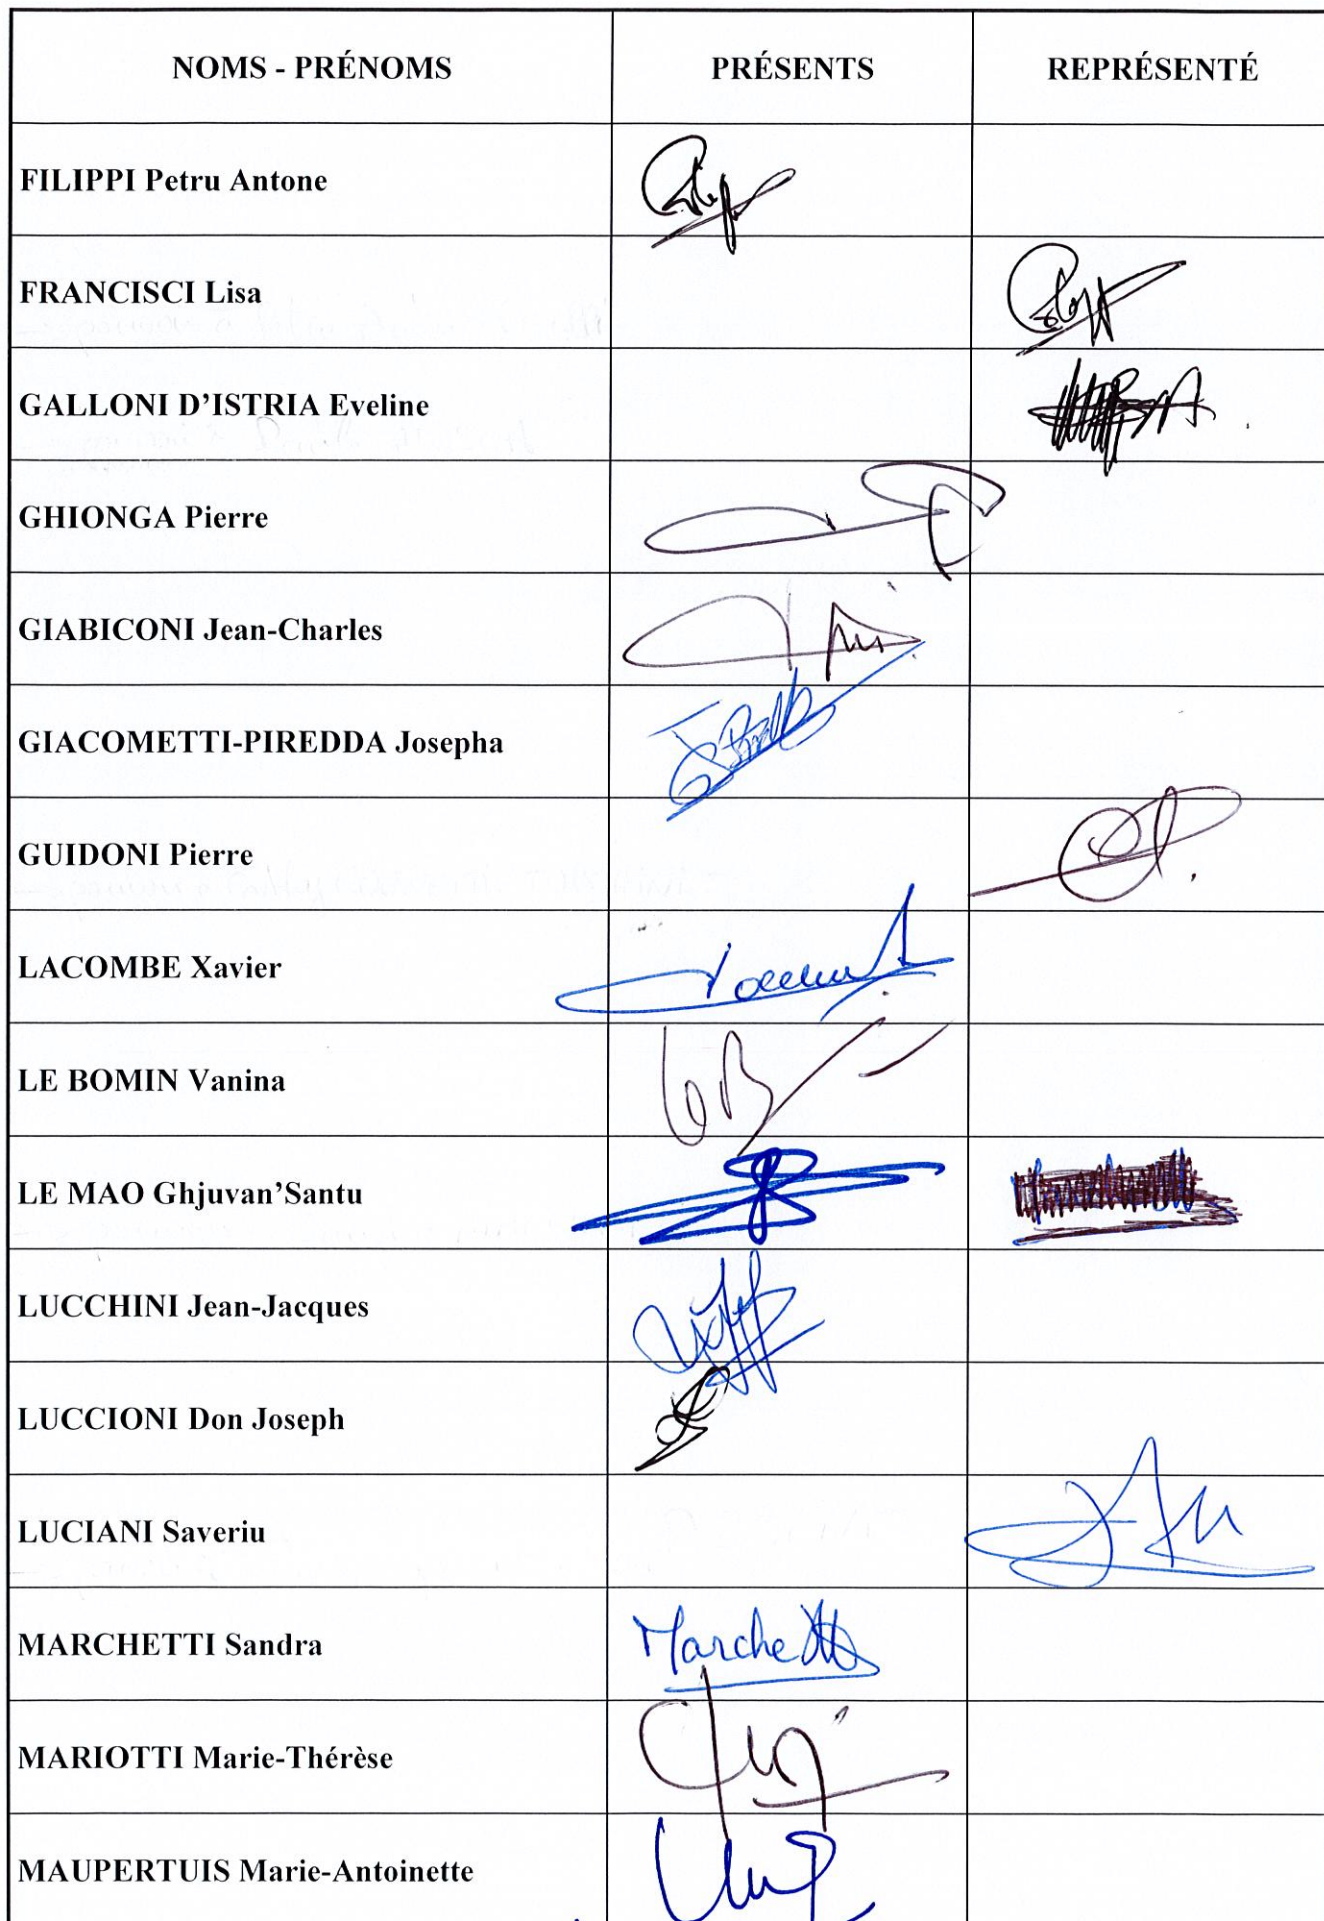 NOMS - PRÉNOMS PRÉSENTS REPRÉSENTÉ
FILIPPI Petru Antone
FRANCISCI Lisa
GALLONI D'ISTRIA Eveline
GHIONGA Pierre
GIABICONI Jean-Charles
GIACOMETTI-PIREDDA Josepha
GUIDONI Pierre
LACOMBE Xavier
LE BOMIN Vanina
LE MAO Ghjuvan'Santu
LUCCHINI Jean-Jacques
LUCCIONI Don Joseph
LUCIANI Saveriu
MARCHETTI Sandra Marchetti
MARIOTTI Marie-Thérèse
MAUPERTUIS Marie-Antoinette